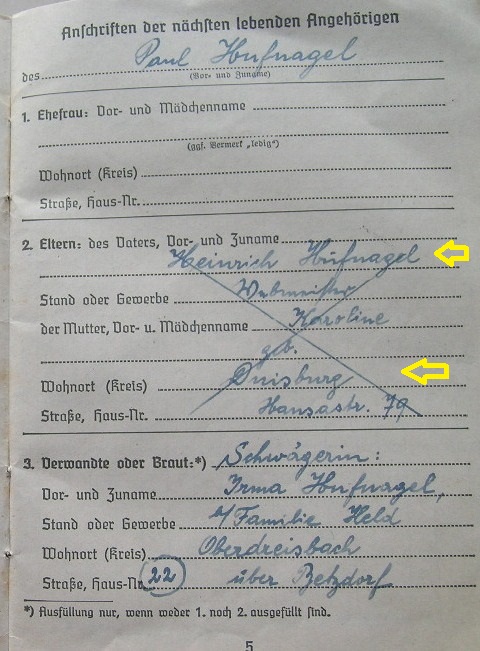 Anschriften der nächsten lebenden Angehörigen
des Paul Hufnagel
(Vor- und Zuname)
1. Ehefrau: Vor- und Mädchenname
(ggf. Vermerk „ledig“)
Wohnort (Kreis)
Straße, Haus-Nr.
2. Eltern: des Vaters, Vor- und Zuname
Heinrich Hufnagel
Stand oder Gewerbe Webmeister
der Mutter, Vor- u. Mädchenname Karoline
geb.
Wohnort (Kreis) Duisburg
Straße, Haus-Nr. Hansastr. 79
3. Verwandte oder Braut:*) Schwägerin:
Vor- und Zuname Irma Hufnagel,
Stand oder Gewerbe b/Familie Held
Wohnort (Kreis) Oberdreisbach
Straße, Haus-Nr. 22 über Betzdorf
*) Ausfüllung nur, wenn weder 1. noch 2. ausgefüllt sind.
5